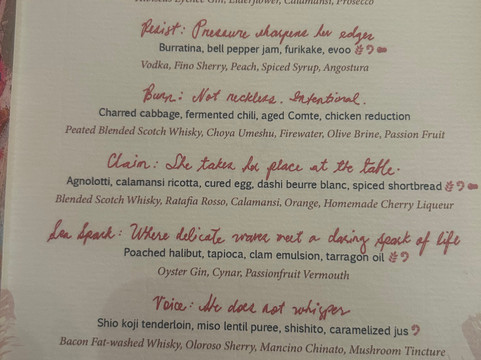 Hibiscus Lychee Gin, Elderflower, Calamansi, Prosecco
Resist: Pressure sharpens her edges
Burratina, bell pepper jam, furikake, evoo
Vodka, Fino Sherry, Peach, Spiced Syrup, Angostura
Burn: Not reckless. Intentional.
Charred cabbage, fermented chili, aged Comte, chicken reduction
Peated Blended Scotch Whisky, Choya Umeshu, Firewater, Olive Brine, Passion Fruit
Claim: She takes her place at the table.
Agnolotti, calamansi ricotta, cured egg, dashi beurre blanc, spiced shortbread
Blended Scotch Whisky, Ratafia Rosso, Calamansi, Orange, Homemade Cherry Liqueur
Sea Spark: Where delicate waves meet a daring spark of life
Poached halibut, tapioca, clam emulsion, tarragon oil
Oyster Gin, Cynar, Passionfruit Vermouth
Voice: She does not whisper
Shio koji tenderloin, miso lentil puree, shishito, caramelized jus
Bacon Fat-washed Whisky, Oloroso Sherry, Mancino Chinato, Mushroom Tincture